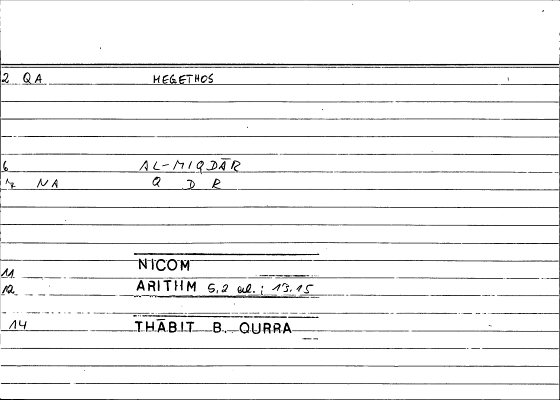 2 QA MEGETHOS
6 AL-MIQDĀR
7 NA Q D R
11 NICOM
12 ARITHM 5,2 al.; 13.15
14 THĀBIT B. QURRA